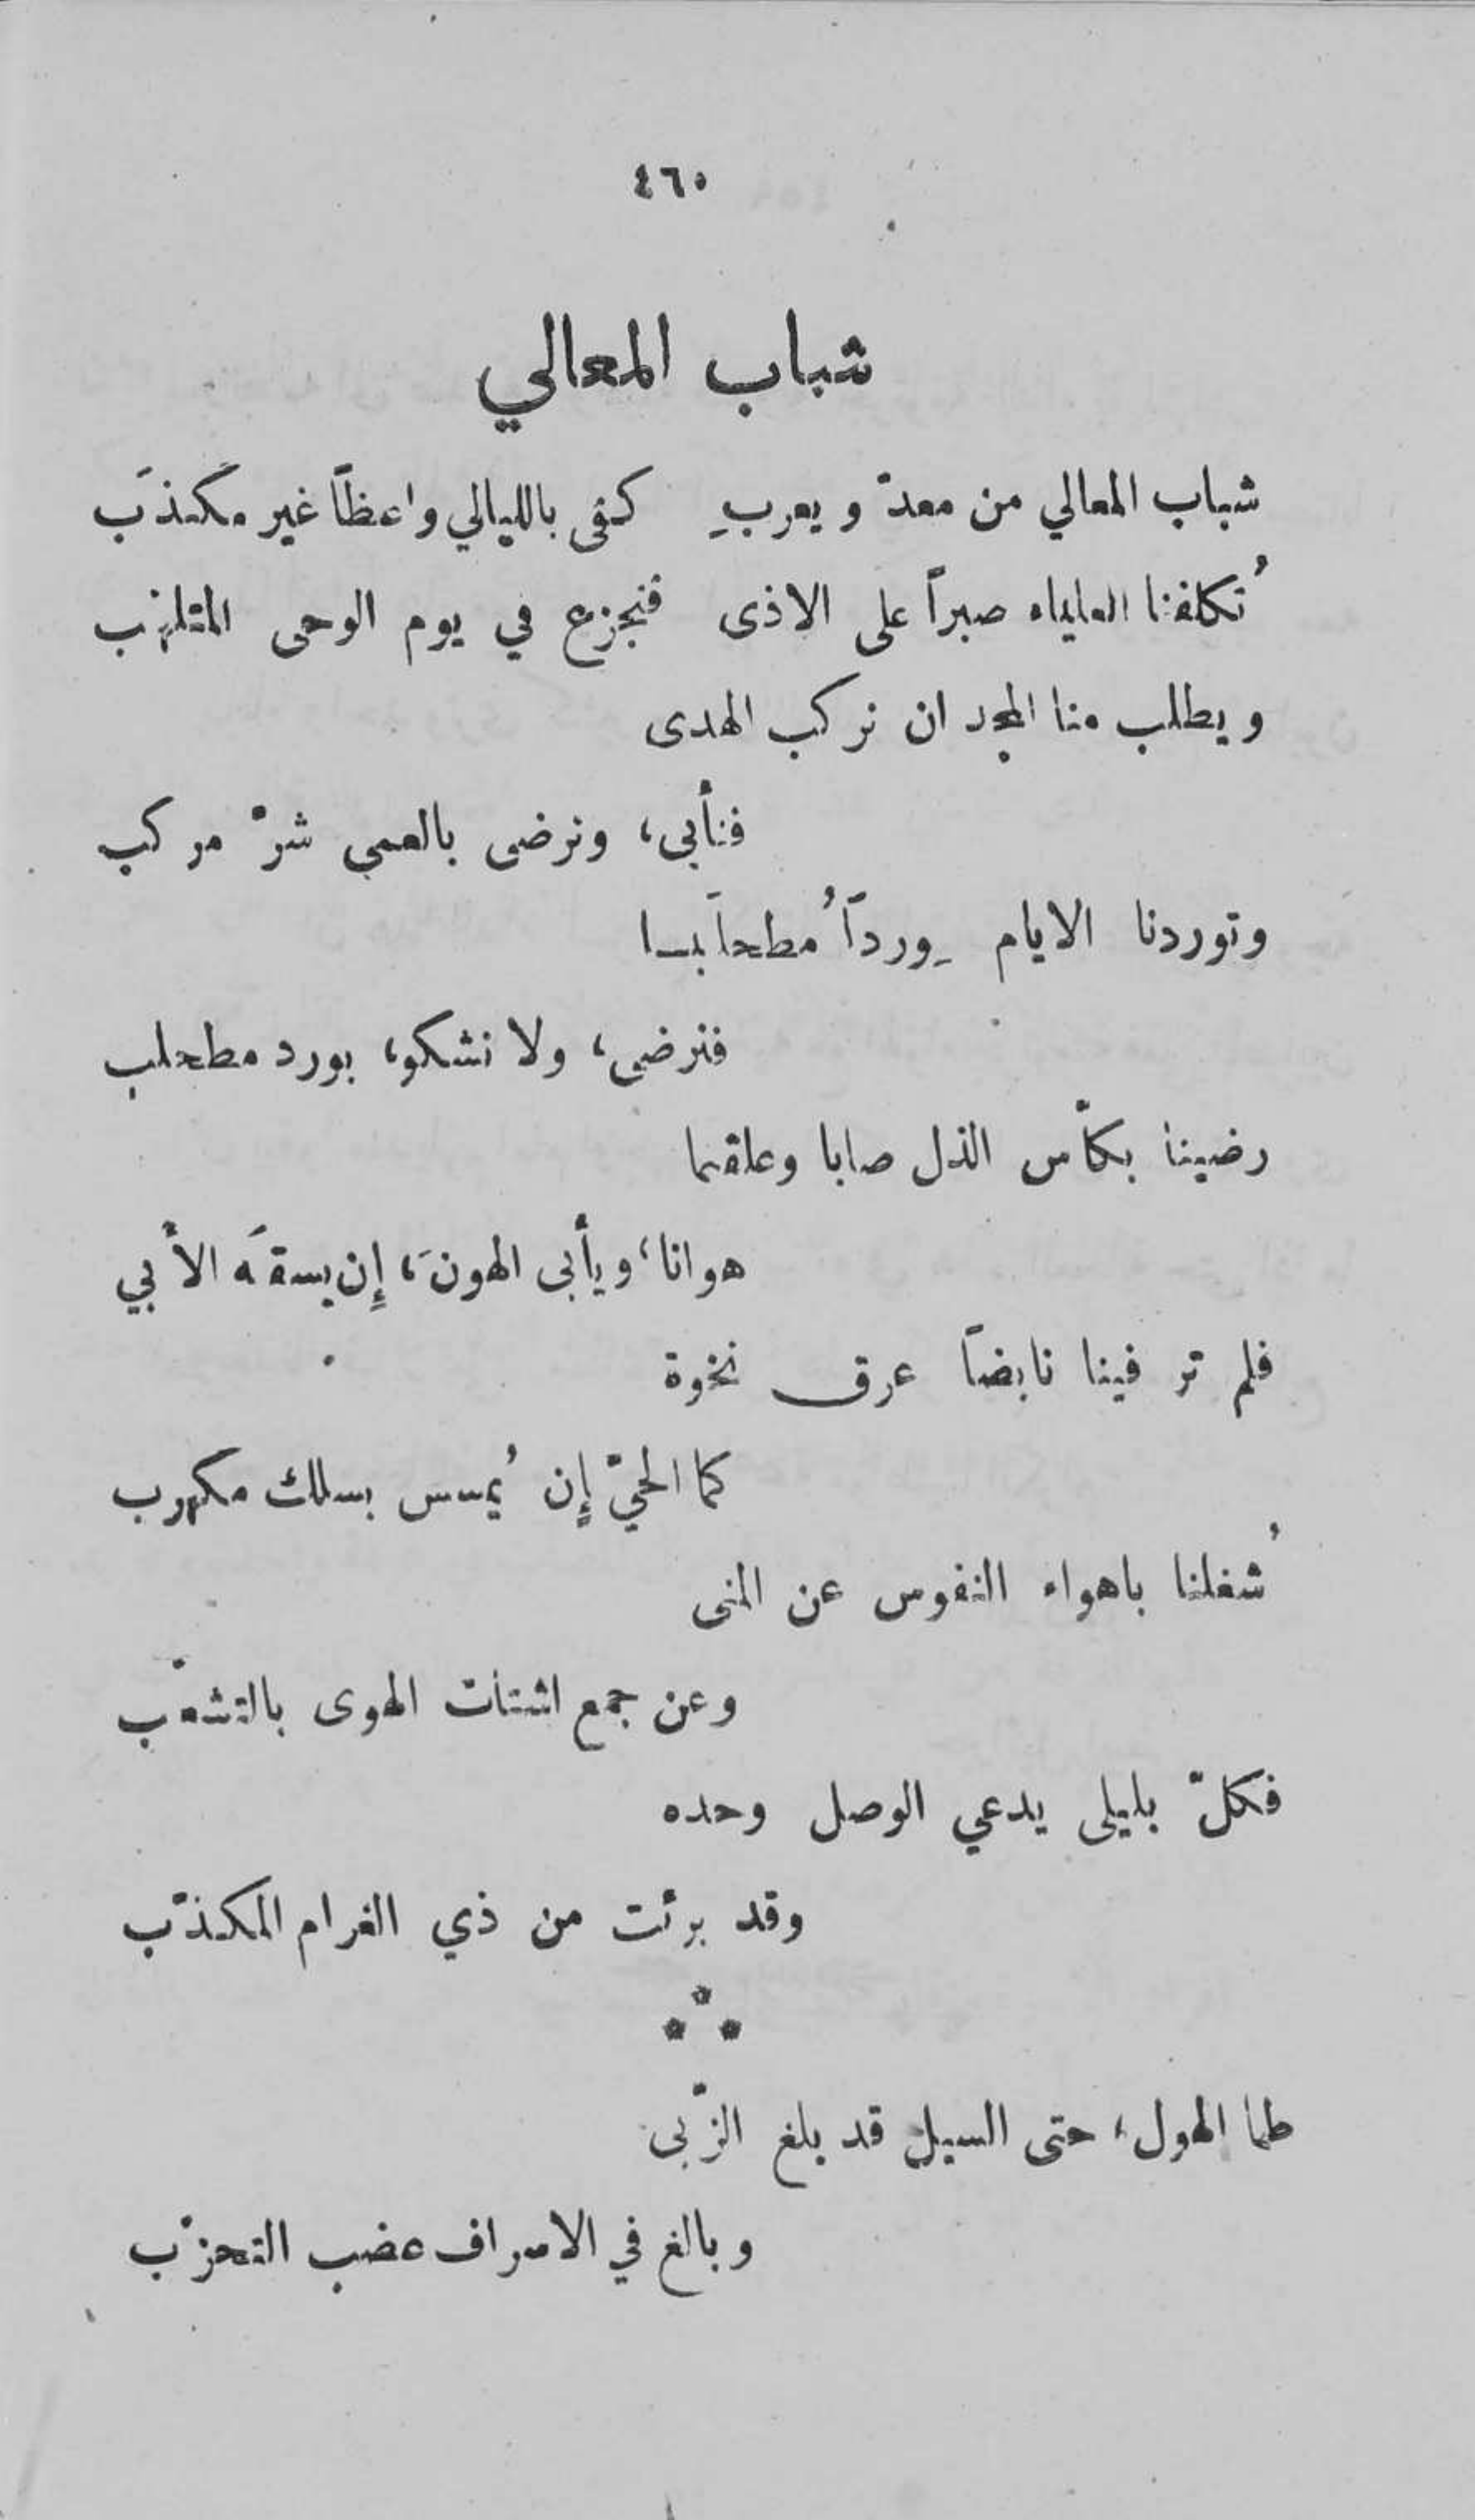 ٤٦٠
شباب المعالي
شباب المعالي من معدّ ويعربِ كفى بالليالي واعظاً غير مكذَّب
تُكلفنا العلياء صبراً على الاذى فنجزع في يوم الوحى المتلهّب
ويطلب منا المجد ان نركب الهدى
فنأبى، ونرضى بالعمى شرّ مركب
وتوردنا الايام وِرداً مُطحلَبا
فنرضى، ولا نشكو، بورد مطحلب
رضينا بكأس الذل صابا وعلقما
هوانا، ويأبى الهونَ، إِن يسقَه الأبي
فلم تر فينا نابضاً عرق نخوة
كما الحيّ إِن يُمسس بسلك مكهرب
شُغلنا باهواء النفوس عن المنى
وعن جمع اشتات الهوى بالتشعّب
فكلّ بليلى يدعي الوصل وحده
وقد برئت من ذي الغرام المكذّب
طما الهول، حتى السيل قد بلغ الزّبى
وبالغ في الاسراف عضب التحزّب